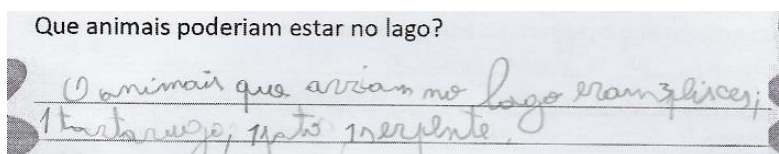 Que animais poderiam estar no lago?
O animais que avriam no lago eram 3 pisces;
1 tartaruga, 1 pato 1 serpente.